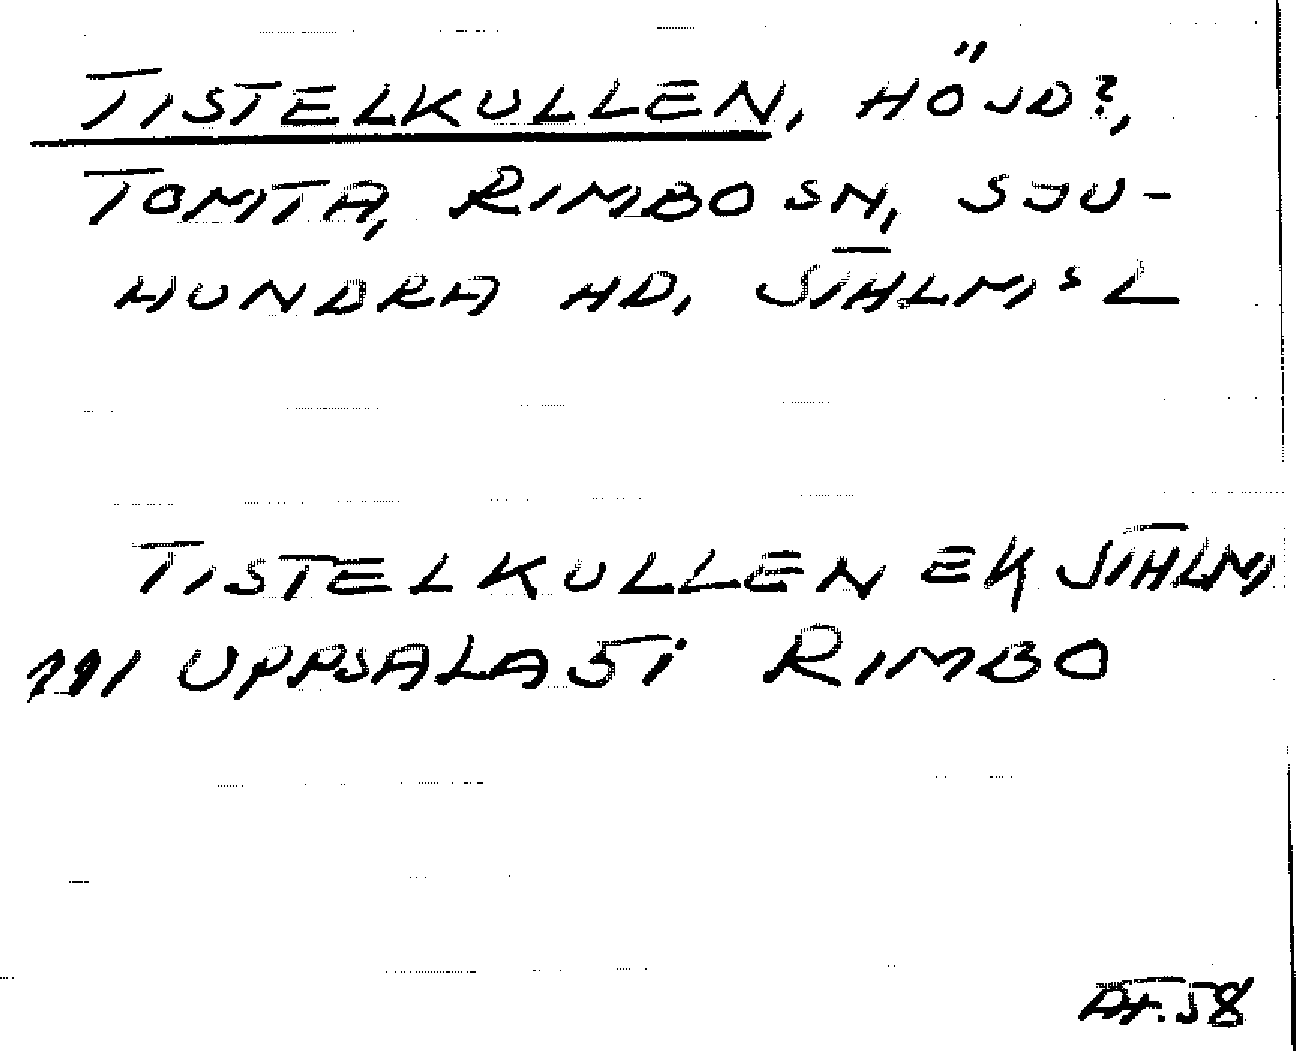 TISTELKULLEN, HÖJD?,
TOMTA, RIMBO SN, SJU-
HUNDRA HD, STHLMS L
TISTELKULLEN EK STHLM
191 UPPSALA 5i RIMBO
58